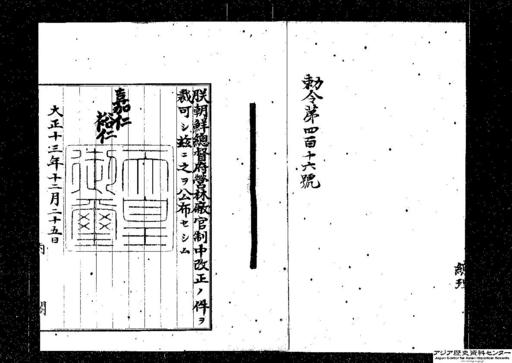 勅令第四百十六號
朕朝鮮總督府營林廠官制中改正ノ件ヲ
裁可シ玆ニ之ヲ公布セシム
嘉仁
裕仁
天皇
御璽
大正十三年十二月二十五日
内
閣
アジア歴史資料センター
Japan Center for Asian Historical Records